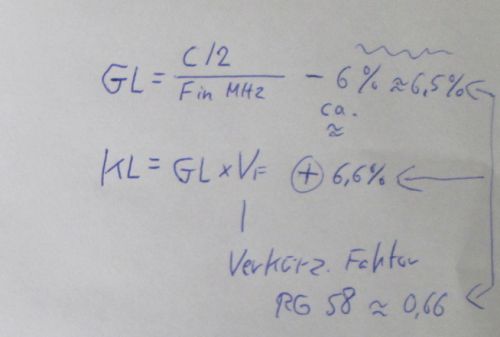 GL = C/2 / F in MHz - 6% ≈ 6,5%
ca.
≈
KL = GL x VF ⊕ 6,6%
Verkürz. Faktor
RG 58 ≈ 0,66